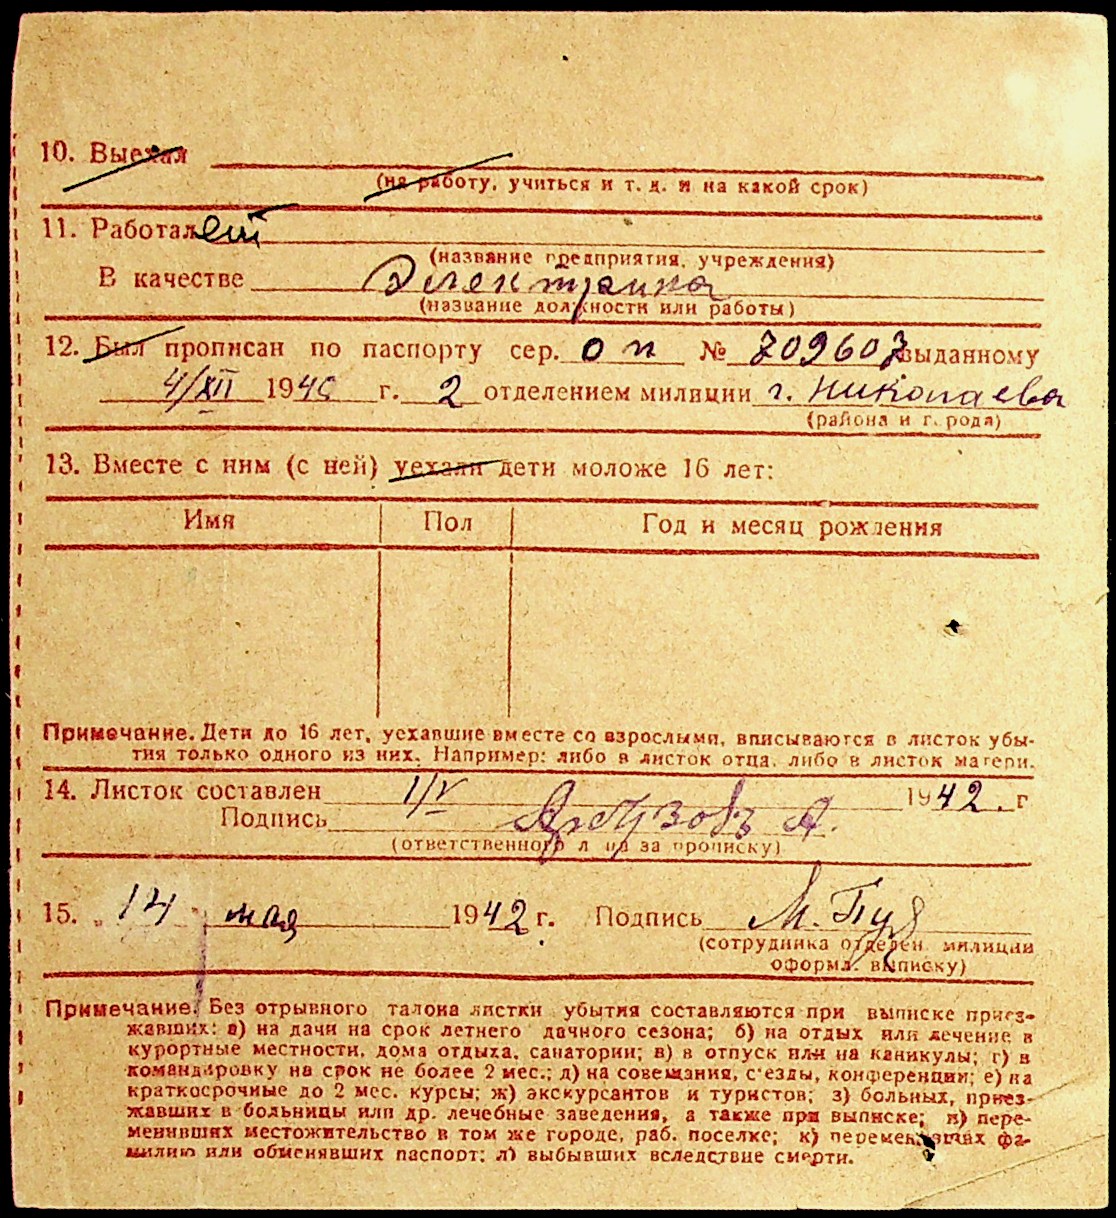 10. Выехал
(на работу, учиться и т. д. и на какой срок)
11. Работал ет
(название предприятия, учреждения)
В качестве Электрика
(название должности или работы)
12. Был прописан по паспорту сер. оп № 709607 выданному
4/XII 1940 г. 2 отделением милиции г. Николаева
(района и города)
13. Вместе с ним (с ней) уехали дети моложе 16 лет:
Имя Пол Год и месяц рождения
Примечание. Дети до 16 лет, уехавшие вместе со взрослыми, вписываются в листок убы-
тия только одного из них. Например: либо в листок отца, либо в листок матери.
14. Листок составлен 1/V 1942. г
Подпись А.
(ответственного лица за прописку)
15. „14„ мая 1942 г. Подпись М.
(сотрудника отделен. милиции
оформл. выписку)
Примечание. Без отрывного талона листки убытия составляются при выписке приез-
жавших: а) на дачи на срок летнего дачного сезона; б) на отдых или лечение в
курортные местности, дома отдыха, санатории; в) в отпуск или на каникулы; г) в
командировку на срок не более 2 мес.; д) на совещания, с'езды, конференции; е) на
краткосрочные до 2 мес. курсы; ж) экскурсантов и туристов; з) больных, приез-
жавших в больницы или др. лечебные заведения, а также при выписке; и) пере-
менивших местожительство в том же городе, раб. поселке; к) переменивших фа-
милию или обменявших паспорт; л) выбывших вследствие смерти.